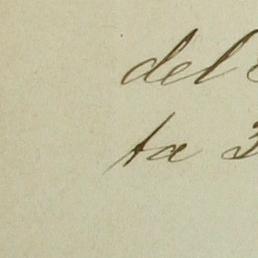 del
ta